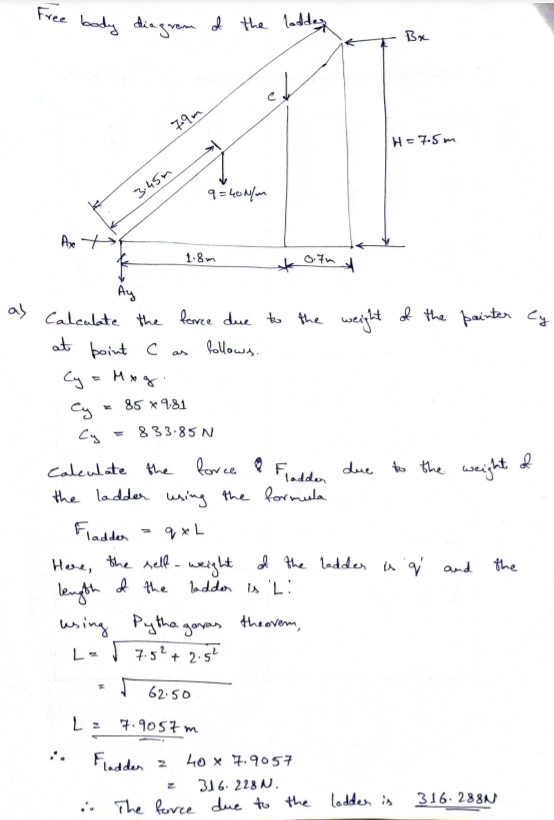 Free body diagram of the ladder
Bx
7.9m
C
H = 7.5 m
3.45m
q = 40 N/m
Ax
1.8m
0.7m
Ay
a) Calculate the force due to the weight of the painter Cy
at point C as follows.
Cy = M × g.
Cy = 85 × 9.81
Cy = 833.85 N
Calculate the force Fladder due to the weight of
the ladder using the formula
Fladder = q × L
Here, the self-weight of the ladder is 'q' and the
length of the ladder is 'L'.
using Pythagoras theorem,
L = √7.5² + 2.5²
= √62.50
L = 7.9057 m
∴ Fladder = 40 × 7.9057
= 316.228 N.
∴ The force due to the ladder is 316.288N